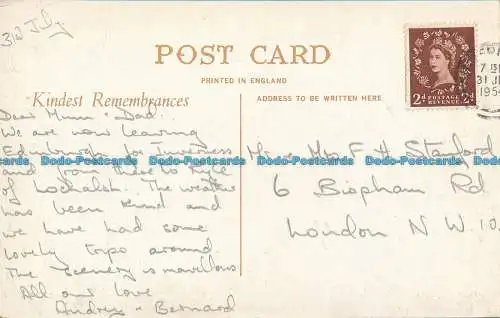 31st July
POST CARD
PRINTED IN ENGLAND
Kindest Remembrances
ADDRESS TO BE WRITTEN HERE
Dear Mum & Dad.
We are now leaving
Edinburgh for Inverness
and from there to Kyle
of Lochalsh. The weather
has been kind and
we have had some
lovely trips around.
The scenery is marvellous
All our love
Audrey & Bernard
Mr & Mrs F H Stanford
6 Bispham Rd
London N W 10.
2d POSTAGE REVENUE 2d
7
31 J
195
Dodo-Postcards Dodo-Postcards Dodo-Postcards Dodo-Postcards